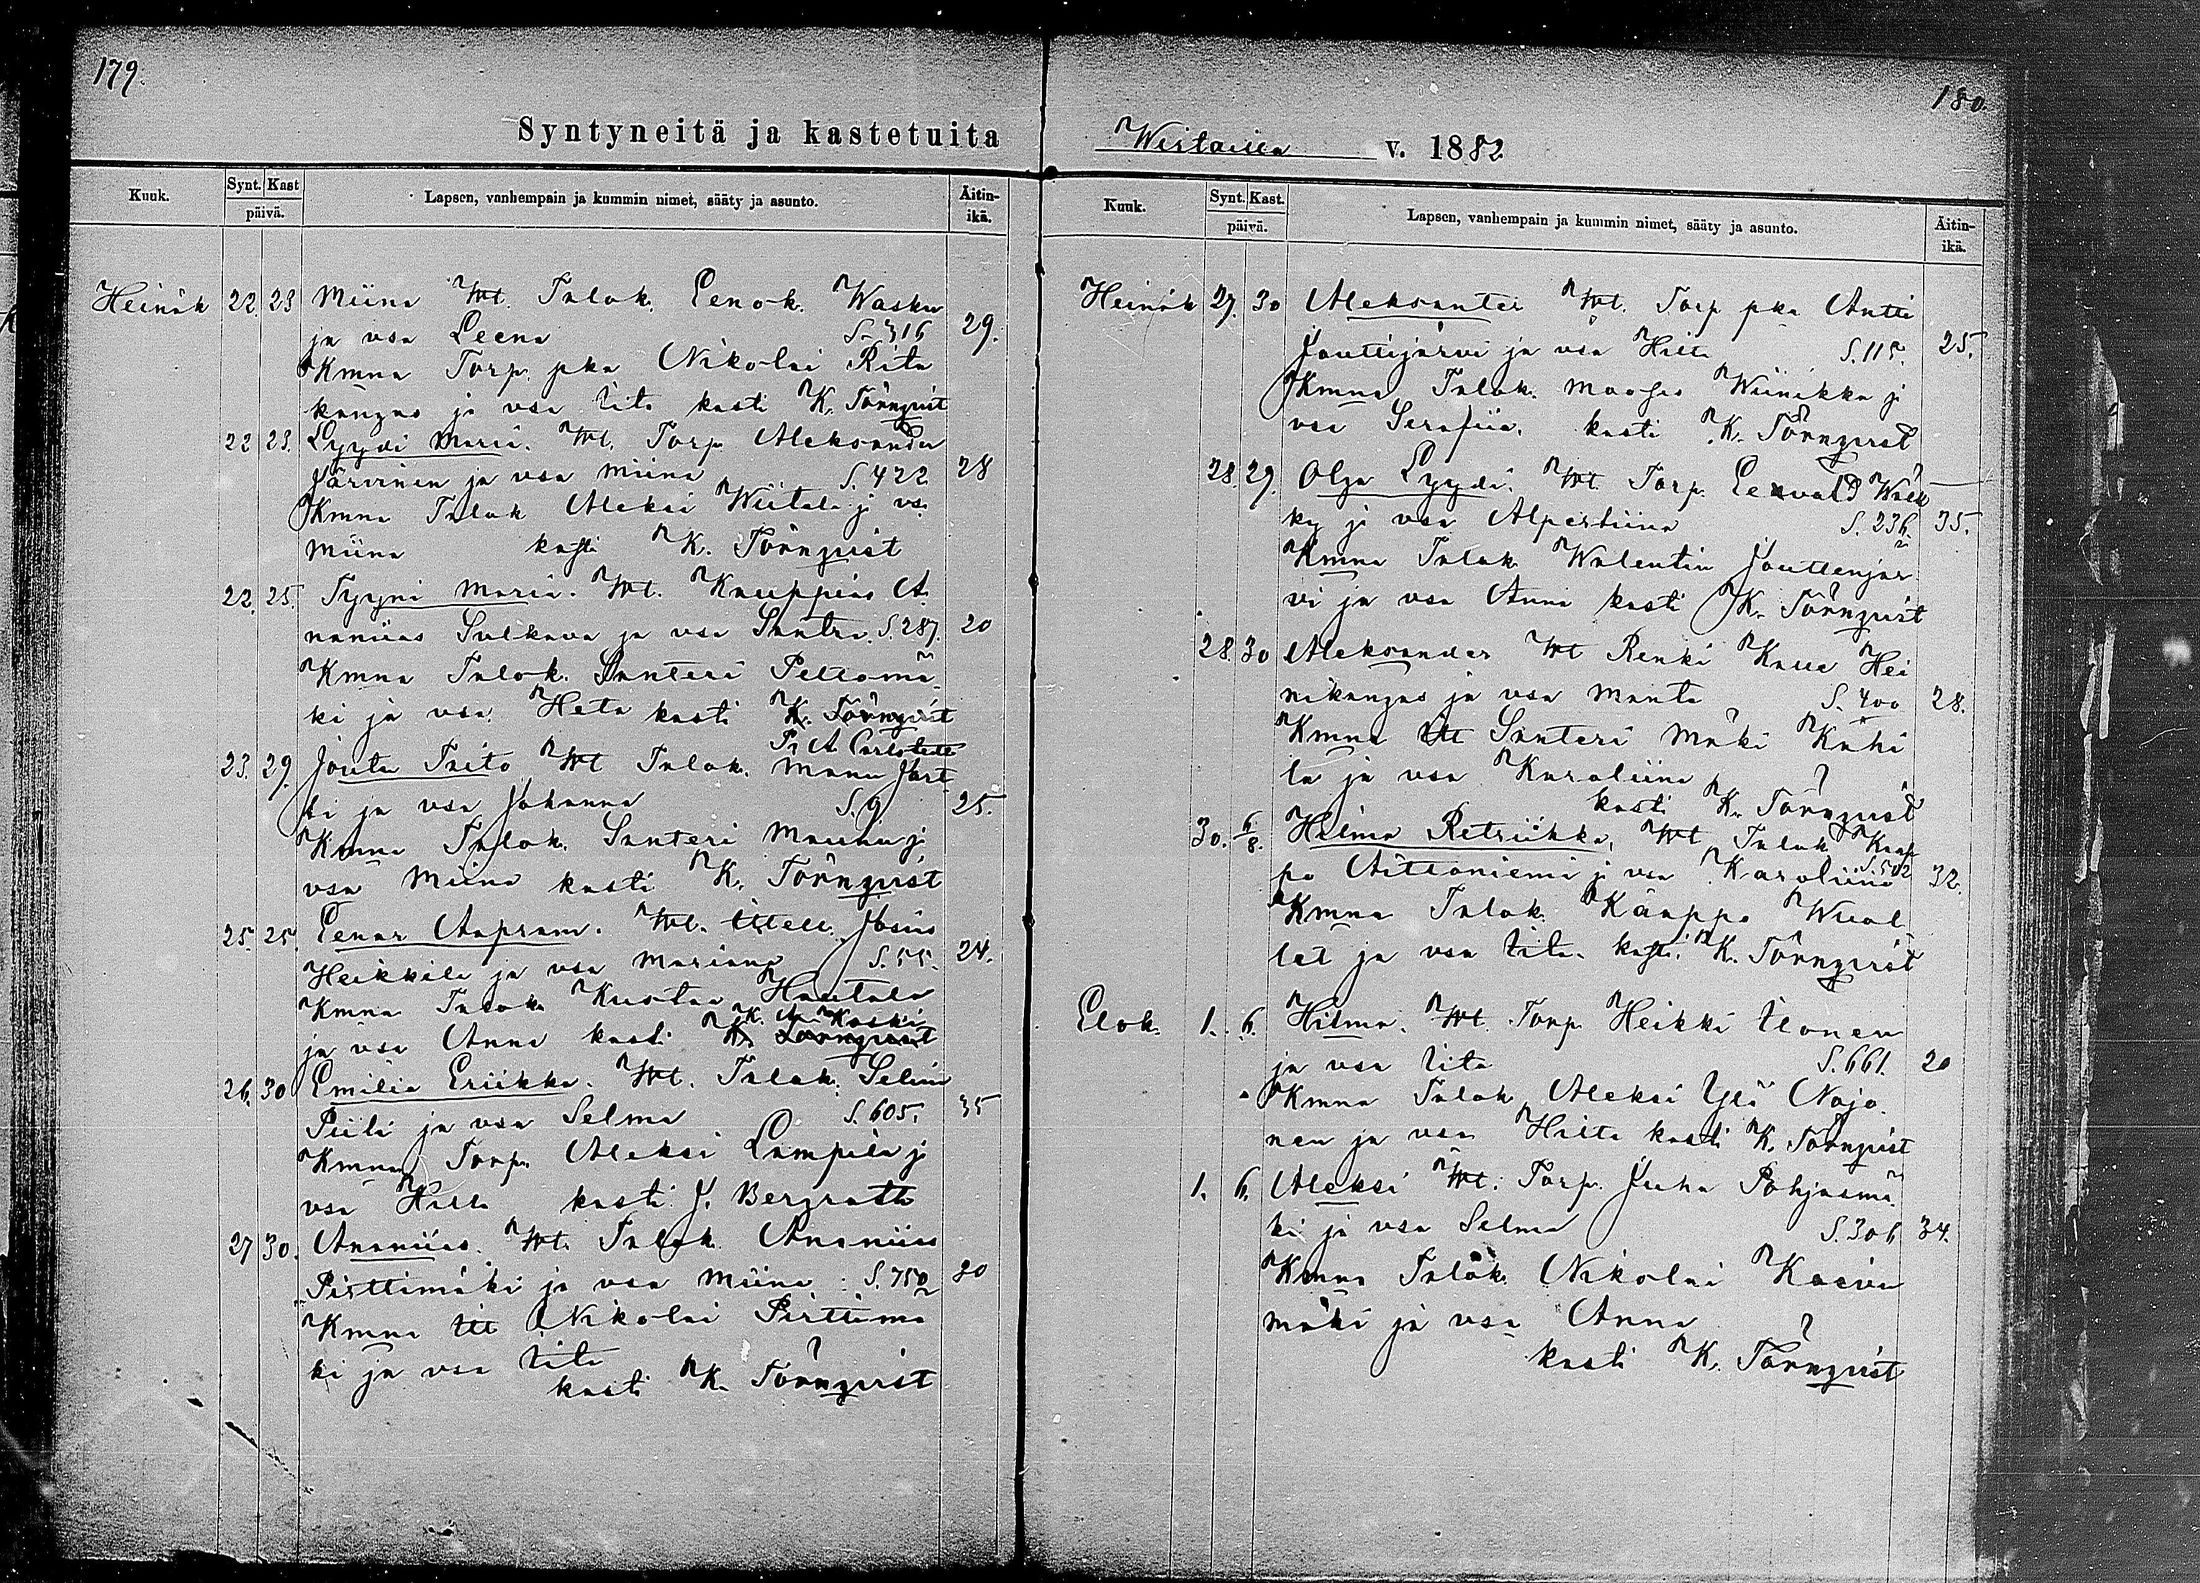 179.
Syntyneitä ja kastetuita
Kuuk. Synt. Kast päivä. Lapsen, vanhempain ja kummin nimet, sääty ja asunto. Äitin-ikä.
Heinäk 22 23 Miina Vt. Talok. Eenok. Wasku
ja vsa Leena S. 316 29.
Kmna Torp. pka Nikolai Rita
kangas ja vsa Iita kasti K. Törnqvist
22 23. Lyydi Maria. Vt. Torp Aleksander
Järvinen ja vsa Miina S. 422 28
Kmna Talok Aleksi Wiitala j vs.
Miina kasti K. Törnqvist
22. 25. Tyyni Maria. Vt. Kauppias A.
naniias Sulkava ja vsa Santra. S. 287. 20
Kmna Talok. Santeri Peltomä
ki ja vsa. Heta kasti K. Törnqvist
P. A. Carlstedt
23. 29. Jouta Taito Vt Talok. Manu Järt
ti ja vsa Johanna S. 9 25.
Kmna Talok. Santeri Mauhu j
vsa Miina kasti K. Törnqvist
25. 25. Eenar Aapram. Vt. Itsell. Josius
Heikkilä ja vsa Mariana S. 55. 24.
Kmna Talok Kustaa Hautala
K. A. Koski
ja vsa Anna kasti K. Törnqvist
26. 30 Emilia Eriikka. Vt. Talok. Selim
Piili ja vsa Selma S. 605. 35
Kmna Torp. Aleksi Lampila j
vsa Hilta kasti J. Bergroth
27 30. Ananiias. Vt. Talok. Ananiias
Pirttimäki ja vsa Miina S. 750 20
Kmna Itt Nikolai Pirttimä
ki ja vsa Iita
kasti K. Törnqvist
180.
Wiitasaa v. 1882
Kuuk. Synt. Kast. päivä. Lapsen, vanhempain ja kummin nimet, sääty ja asunto. Äitin-ikä.
Heinäk 27. 30 Aleksanter Vt. Torp pka Antti
Jouttijärvi ja vsa Hilta S. 115. 25.
Kmna Talok. Mooses Wiinikka j
vsa Serafiia. kasti K. Törnqvist
28. 29. Olga Lyydi. Vt. Torp. Eewald Walk
ky ja vsa Alpertiina S. 236. 35.
Kmna Talok Walentin Jouttenjär
vi ja vsa Anna kasti K. Törnqvist
28. 30 Aleksander Vt Renki Kalle Hei
nikangas ja vsa Manta S. 400 28.
Kmna Itt Santeri Mäki Kahi
la ja vsa Karoliina
kasti K. Törnqvist
30. 6/8. Hilma Retriikka, Vt Talok Kaap
po Aittoniemi j vsa Karoliina S. 502 32.
Kmna Talok Kaappo Wuol
let ja vsa Iita kasti. K. Törnqvist
Elok. 1. 6. Hilma. Vt. Torp. Heikki Ilonen
ja vsa Iita S. 661. 20
Kmna Talok Aleksi Ylä Nojo
nen ja vsa Hilta kasti K. Törnqvist
1. 6. Aleksi Vt. Torp. Juha Pohjasmä
ki ja vsa Selma S. 306 34.
Kmna Talok. Nikolai Kaiva
mäki ja vsa Anna
kasti K. Törnqvist